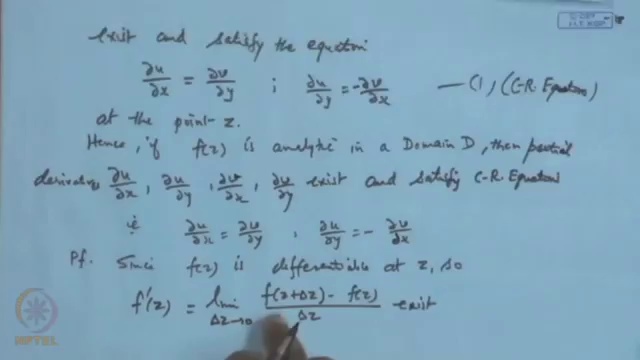 © CET
I.I.T. KGP
exist and satisfy the equation
∂u/∂x = ∂v/∂y ; ∂u/∂y = -∂v/∂x — (1) (C-R. Equation)
at the point z.
Hence, if f(z) is analytic in a Domain D, then partial
derivatives ∂u/∂x, ∂u/∂y, ∂v/∂x, ∂v/∂y exist and satisfy C-R. Equations
ie ∂u/∂x = ∂v/∂y, ∂u/∂y = - ∂v/∂x
Pf. Since f(z) is differentiable at z, so
f'(z) = lim Δz→0 f(z+Δz) - f(z) / Δz exist
NPTEL